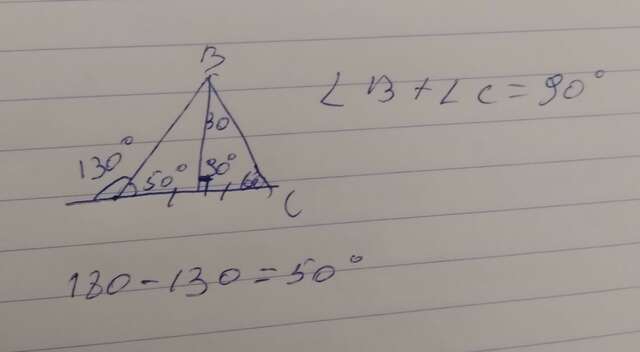 B
∠B+∠C=90°
30
130°
50°
90°
60
C
180-130=50°